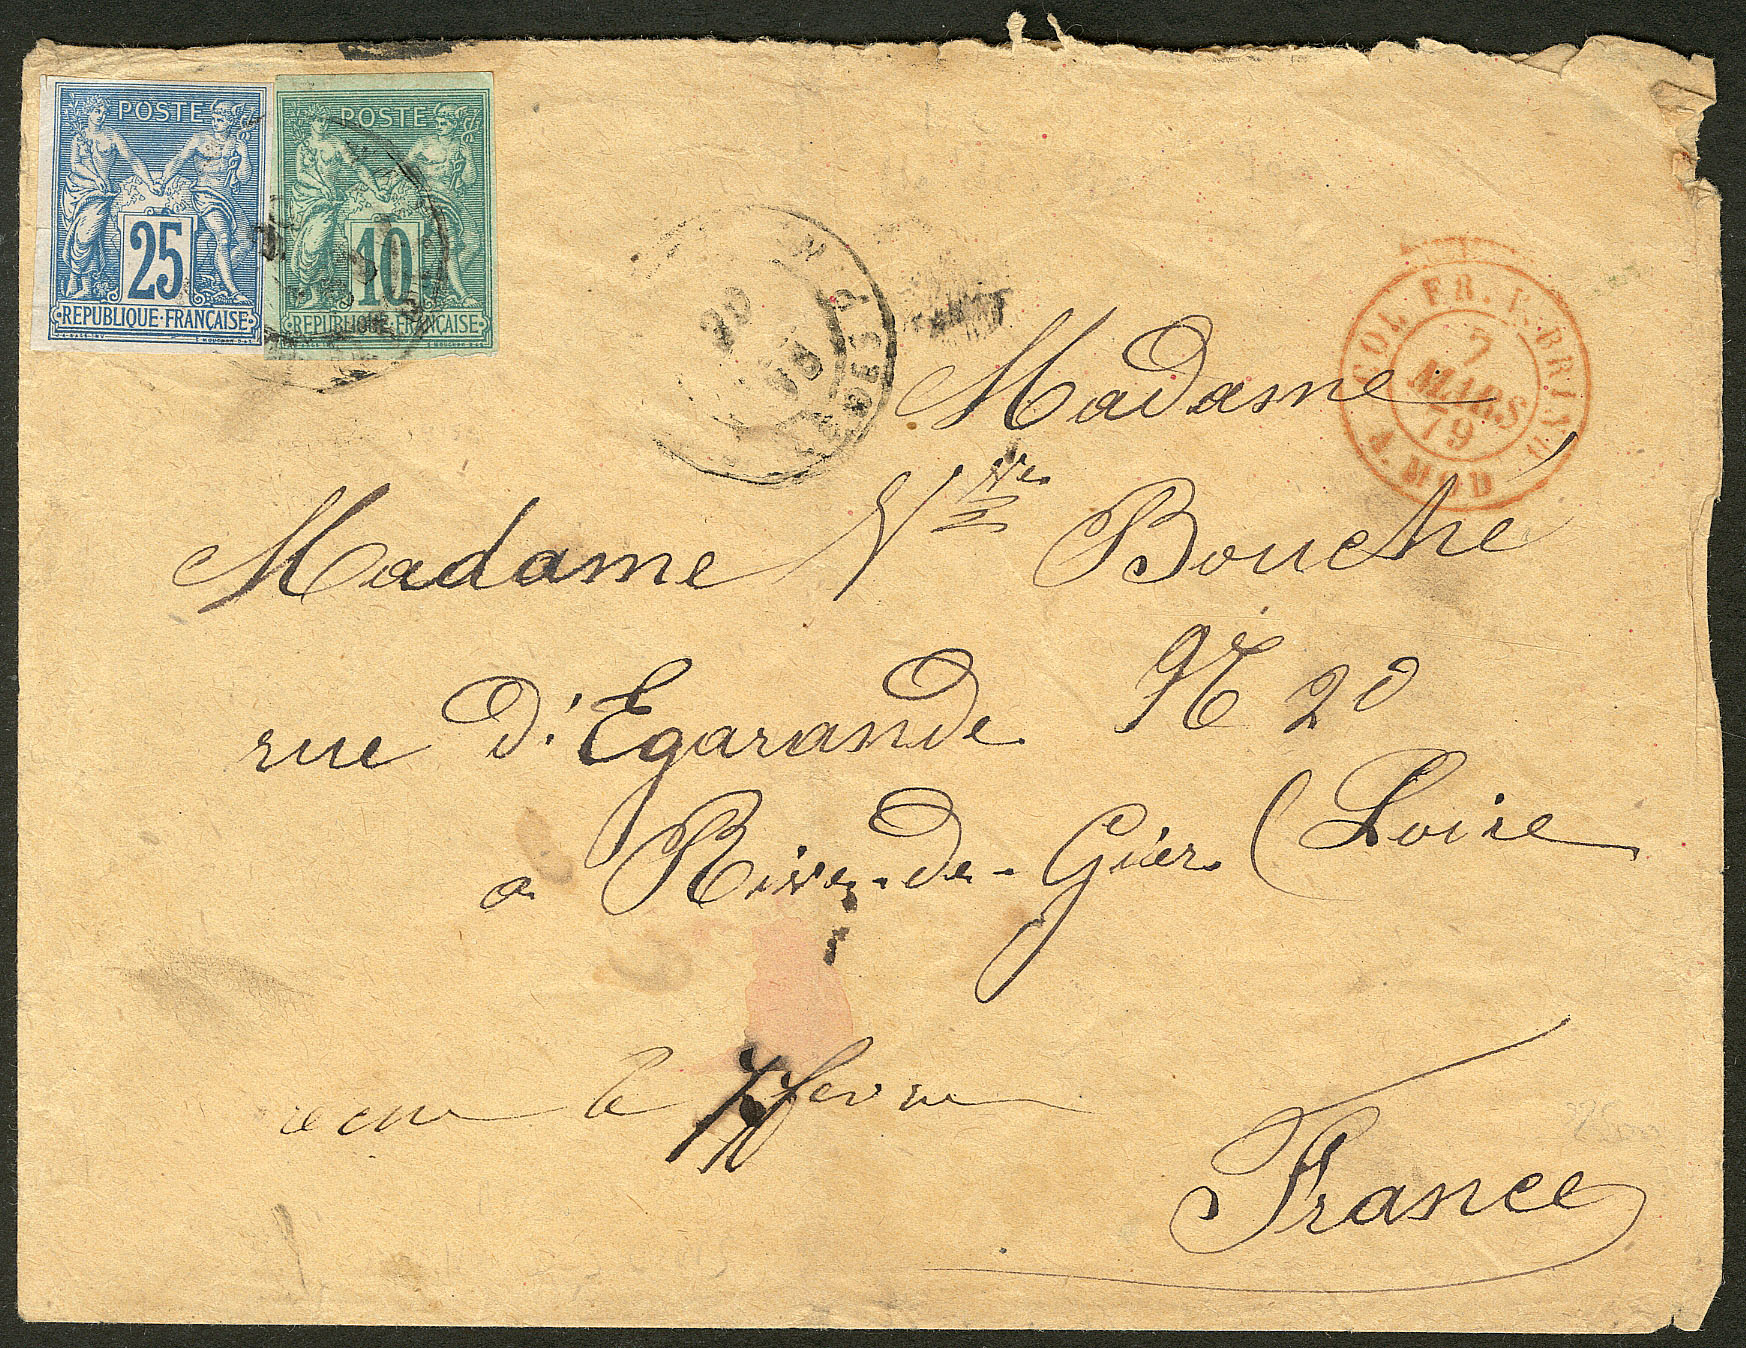 POSTE
25
REPUBLIQUE·FRANÇAISE
POSTE
10
REPUBLIQUE FRANÇAISE
COL. FR. V. BRIND
7
MARS
79
A. MOD
Madame
Madame Vve Bouche
rue d'Egarande N° 20
a Rive-de-Gier (Loire
le 7 fevrie
France